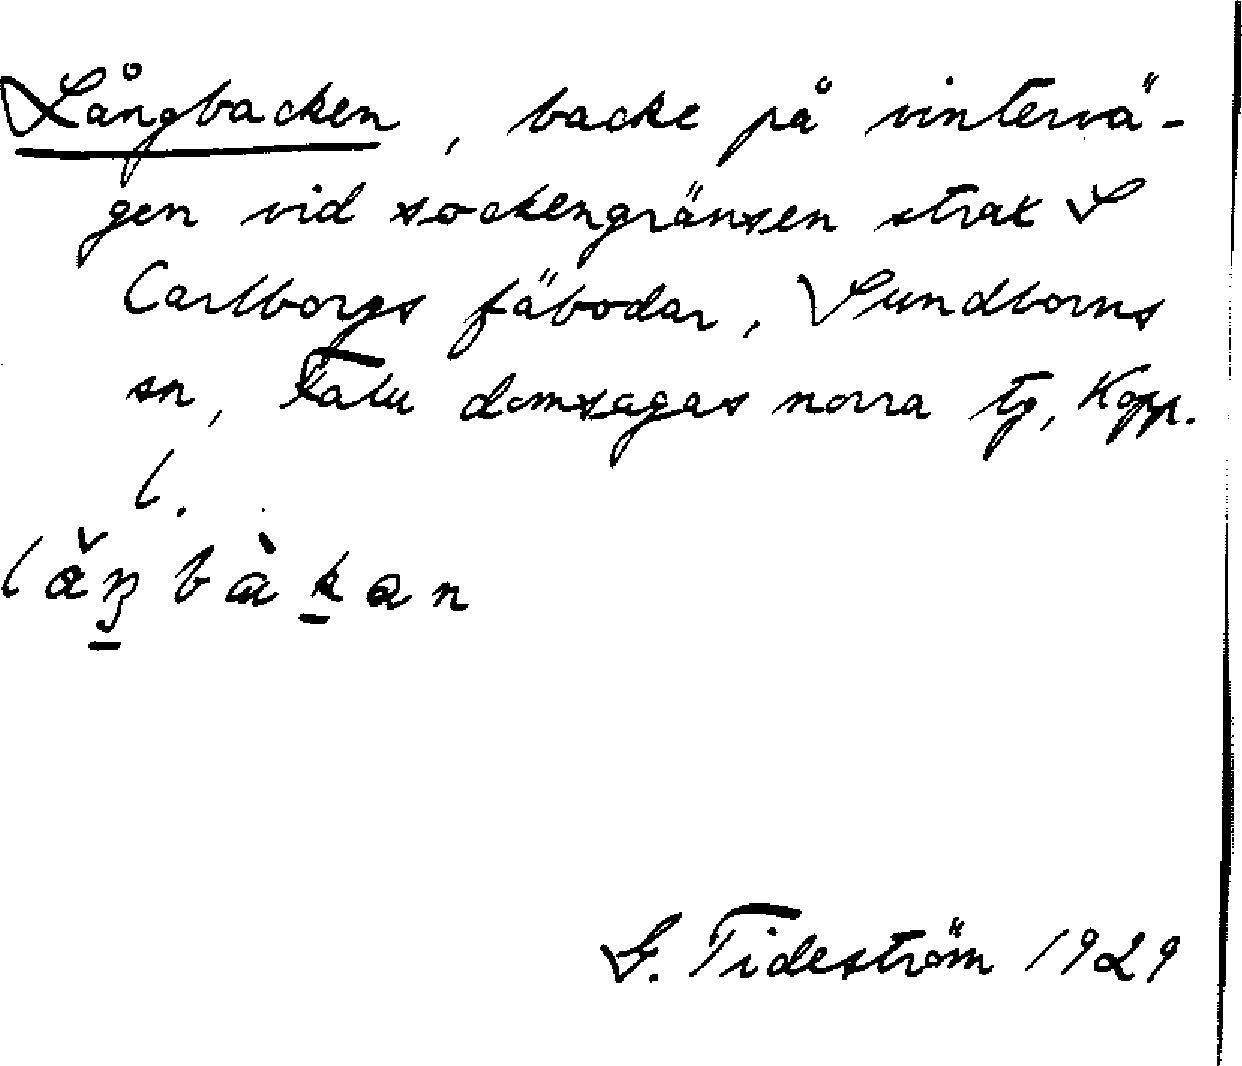 Långbacken, backe på vintervä-
gen vid sockengränsen strax S
Carlborgs fäbodar, Sundborns
sn, Falu domsagas norra tg, Kopp.
l.
G. Tideström 1929